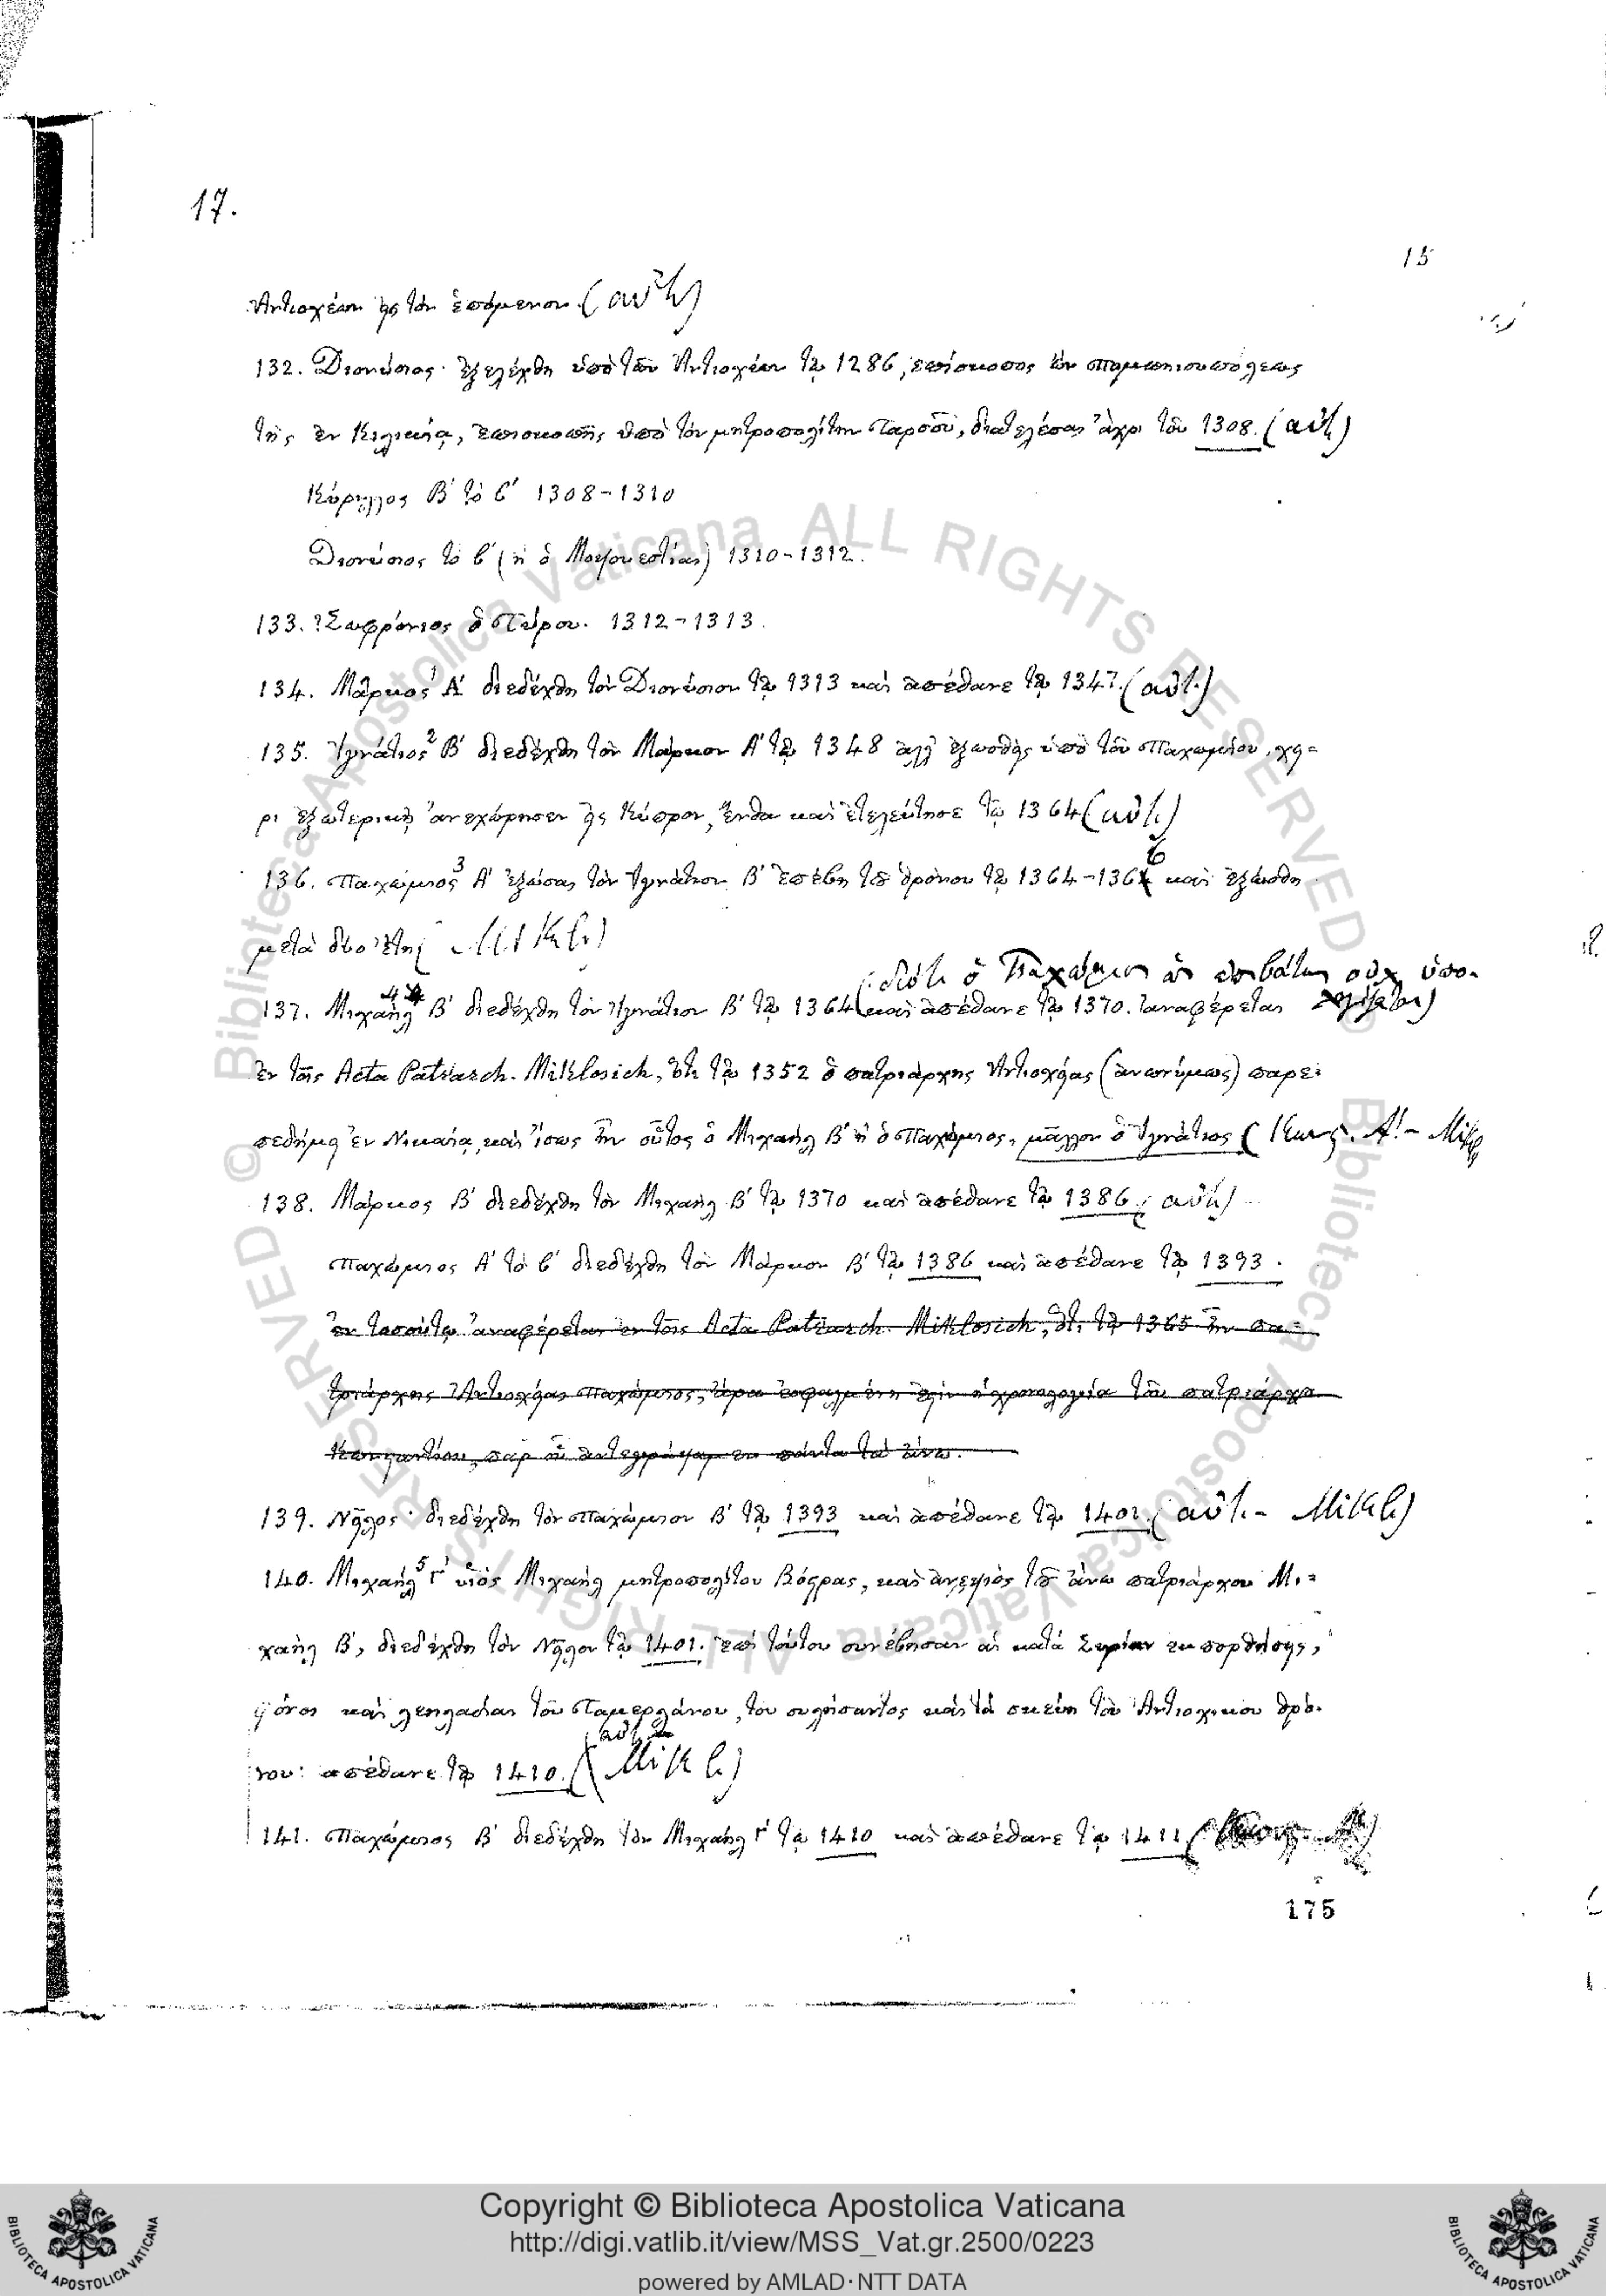 17.
15
Ἀντιοχέων εἰς τὸν ἑπόμενον (αὐτ.)
132. Διονύσιος· ἐξελέχθη ὑπὸ τῶν Ἀντιοχέων τῷ 1286, ἐπίσκοπος ὢν Πομπηιουπόλεως
τῆς ἐν Κιλικίᾳ, ἐπισκοπῆς ὑπὸ τὸν μητροπολίτην Ταρσοῦ, διατελέσας ἄχρι τοῦ 1308. (αὐτ.)
Κύριλλος Β΄ τὸ β΄ 1308-1310
Διονύσιος τὸ β΄ (ἢ ὁ Μοψουεστίας) 1310-1312.
133. ?Σωφρόνιος ὁ Τύρου. 1312-1313.
134. Μᾶρκος¹ Α΄ διεδέχθη τὸν Διονύσιον τῷ 1313 καὶ ἀπέθανε τῷ 1347. (αὐτ.)
135. Ἰγνάτιος² Β΄ διεδέχθη τὸν Μάρκον Α΄ τῷ 1348 ἀλλ' ἐξωσθεὶς ὑπὸ τοῦ Παχωμίου, χει-
ρὶ ἐξωτερικῇ ἀνεχώρησεν εἰς Κύπρον, ἔνθα καὶ ἐτελεύτησε τῷ 1364 (αὐτ.)
136. Παχώμιος³ Α΄ ἐξώσας τὸν Ἰγνάτιον Β΄ ἐπέβη τοῦ θρόνου τῷ 1364-1366 καὶ ἐξώσθη
μετὰ δύο ἔτη (Mikl.)
(διότι ὁ Παχώμιος ὡς ἐπιβάτης οὐχ ὑπο-
137. Μιχαὴλ⁴ Β΄ διεδέχθη τὸν Ἰγνάτιον Β΄ τῷ 1364 καὶ ἀπέθανε τῷ 1370. ἀναφέρεται
ἐν τοῖς Acta Patriarch. Miklosich, ὅτι τῷ 1352 ὁ πατριάρχης Ἀντιοχείας (ἀνωνύμως) παρε-
πεδήμει ἐν Νικαίᾳ, καὶ ἴσως ἦν οὗτος ὁ Μιχαὴλ Β΄ ἢ ὁ Παχώμιος, μᾶλλον ὁ Ἰγνάτιος (Κωνς. Α΄.- Mikl
138. Μάρκος Β΄ διεδέχθη τὸν Μιχαὴλ Β΄ τῷ 1370 καὶ ἀπέθανε τῷ 1386. (αὐτ.)
Παχώμιος Α΄ τὸ β΄ διεδέχθη τὸν Μάρκον Β΄ τῷ 1386 καὶ ἀπέθανε τῷ 1393.
ἐν τοσούτῳ ἀναφέρεται ἐν τοῖς Acta Patriarch. Miklosich, ὅτι τῷ 1365 ἦν πα-
τριάρχης Ἀντιοχείας Παχώμιος, ἄρα ἐσφαλμένη ἐστὶν ἡ χρονολογία τοῦ πατριάρχου
Κωνσταντίου, παρ' οὗ ἀντεγράψαμεν πάντα τὰ ἄνω.
139. Νεῖλος· διεδέχθη τὸν Παχώμιον Β΄ τῷ 1393 καὶ ἀπέθανε τῷ 1401. (αὐτ.- Mikl.)
140. Μιχαὴλ⁵ Γ΄ υἱὸς Μιχαὴλ μητροπολίτου Βόσρας, καὶ ἀνεψιὸς τοῦ ἄνω πατριάρχου Μι-
χαὴλ Β΄, διεδέχθη τὸν Νεῖλον τῷ 1401. ἐπὶ τούτου συνέβησαν αἱ κατὰ Συρίαν ἐκπορθήσεις,
φόνοι καὶ λεηλασίαι τοῦ Ταμερλάνου, τοῦ συλήσαντος καὶ τὰ σκεύη τοῦ Ἀντιοχικοῦ θρό-
νου· ἀπέθανε τῷ 1410. (αὐτ. Mikl.)
141. Παχώμιος Β΄ διεδέχθη τὸν Μιχαὴλ Γ΄ τῷ 1410 καὶ ἀπέθανε τῷ 1411
175
© Biblioteca Apostolica Vaticana ALL RIGHTS RESERVED
© Biblioteca Apostolica Vaticana ALL RIGHTS RESERVED
Copyright © Biblioteca Apostolica Vaticana
http://digi.vatlib.it/view/MSS_Vat.gr.2500/0223
powered by AMLAD·NTT DATA
BIBLIOTECA APOSTOLICA VATICANA
BIBLIOTECA APOSTOLICA VATICANA